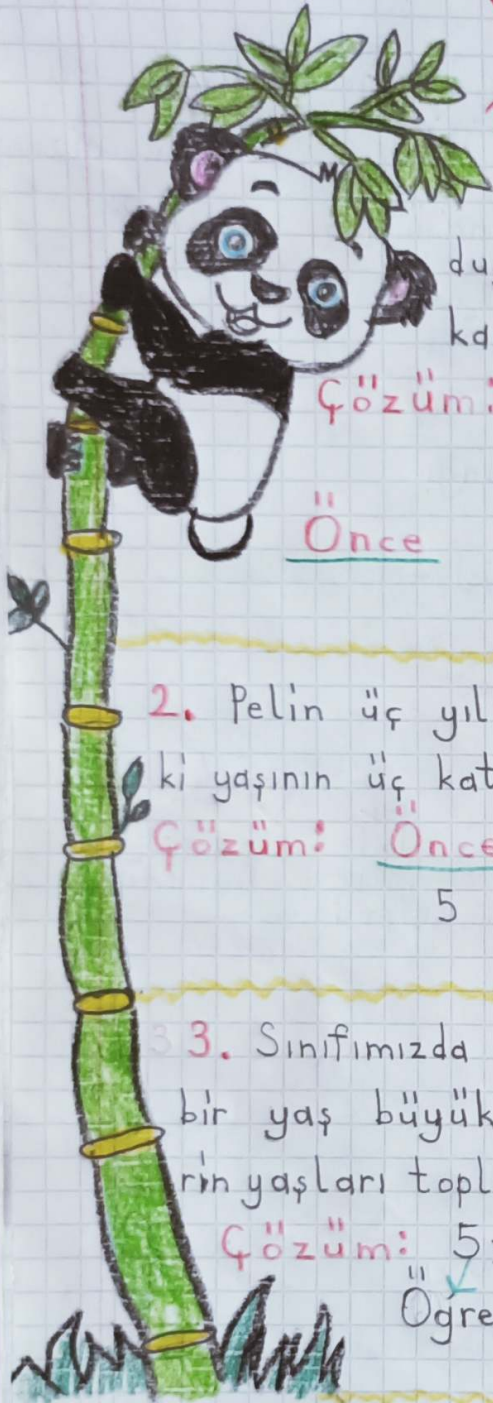 Çözüm:
Önce
2. Pelin üç yıl
ki yaşının üç kat
Çözüm: Önce
5
3. Sınıfımızda
bir yaş büyük
rin yaşları topl
Çözüm: 5
Öğre